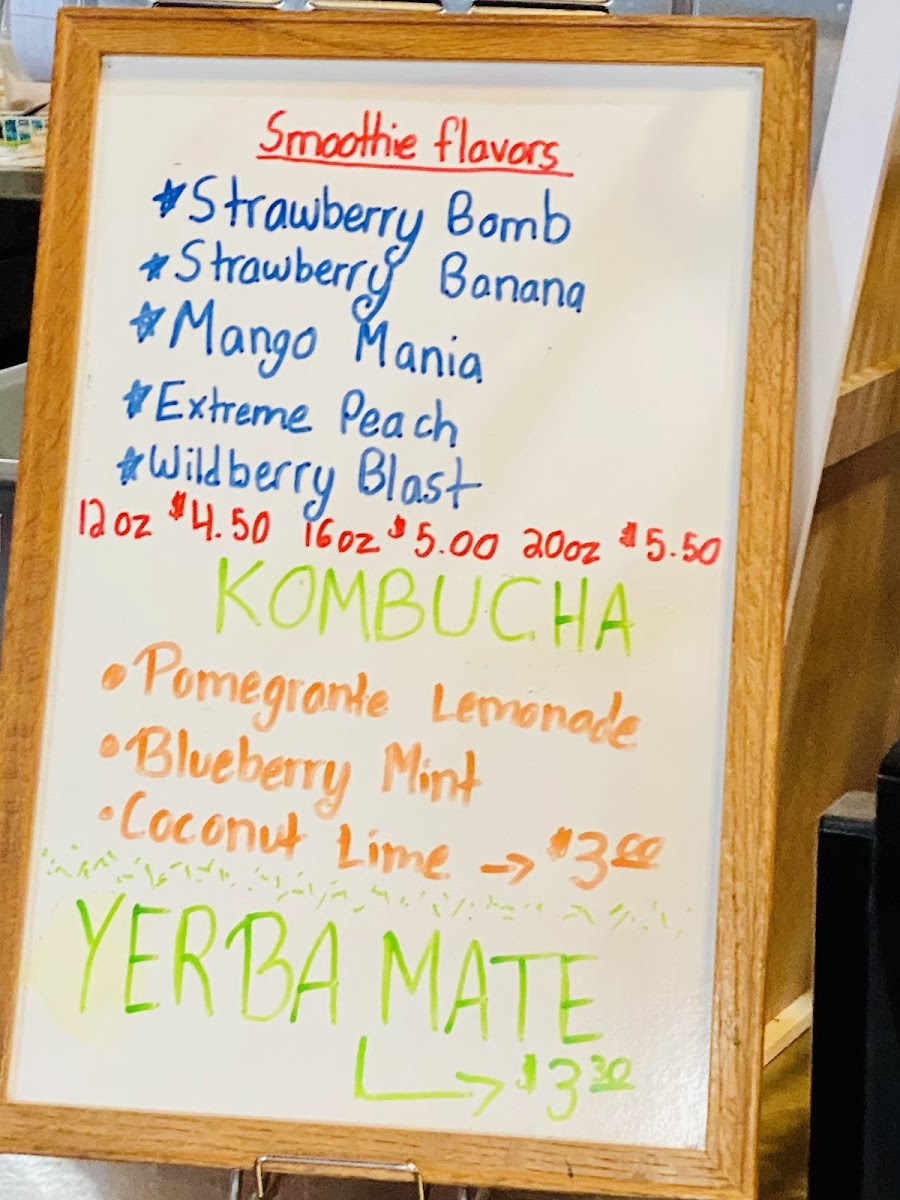 Smoothie flavors
Strawberry Bomb
Strawberry Banana
Mango Mania
Extreme Peach
Wildberry Blast
12oz $4.50 16oz $5.00 20oz $5.50
KOMBUCHA
• Pomegrante Lemonade
• Blueberry Mint
• Coconut Lime → $3.00
YERBA MATE
→ $3.30